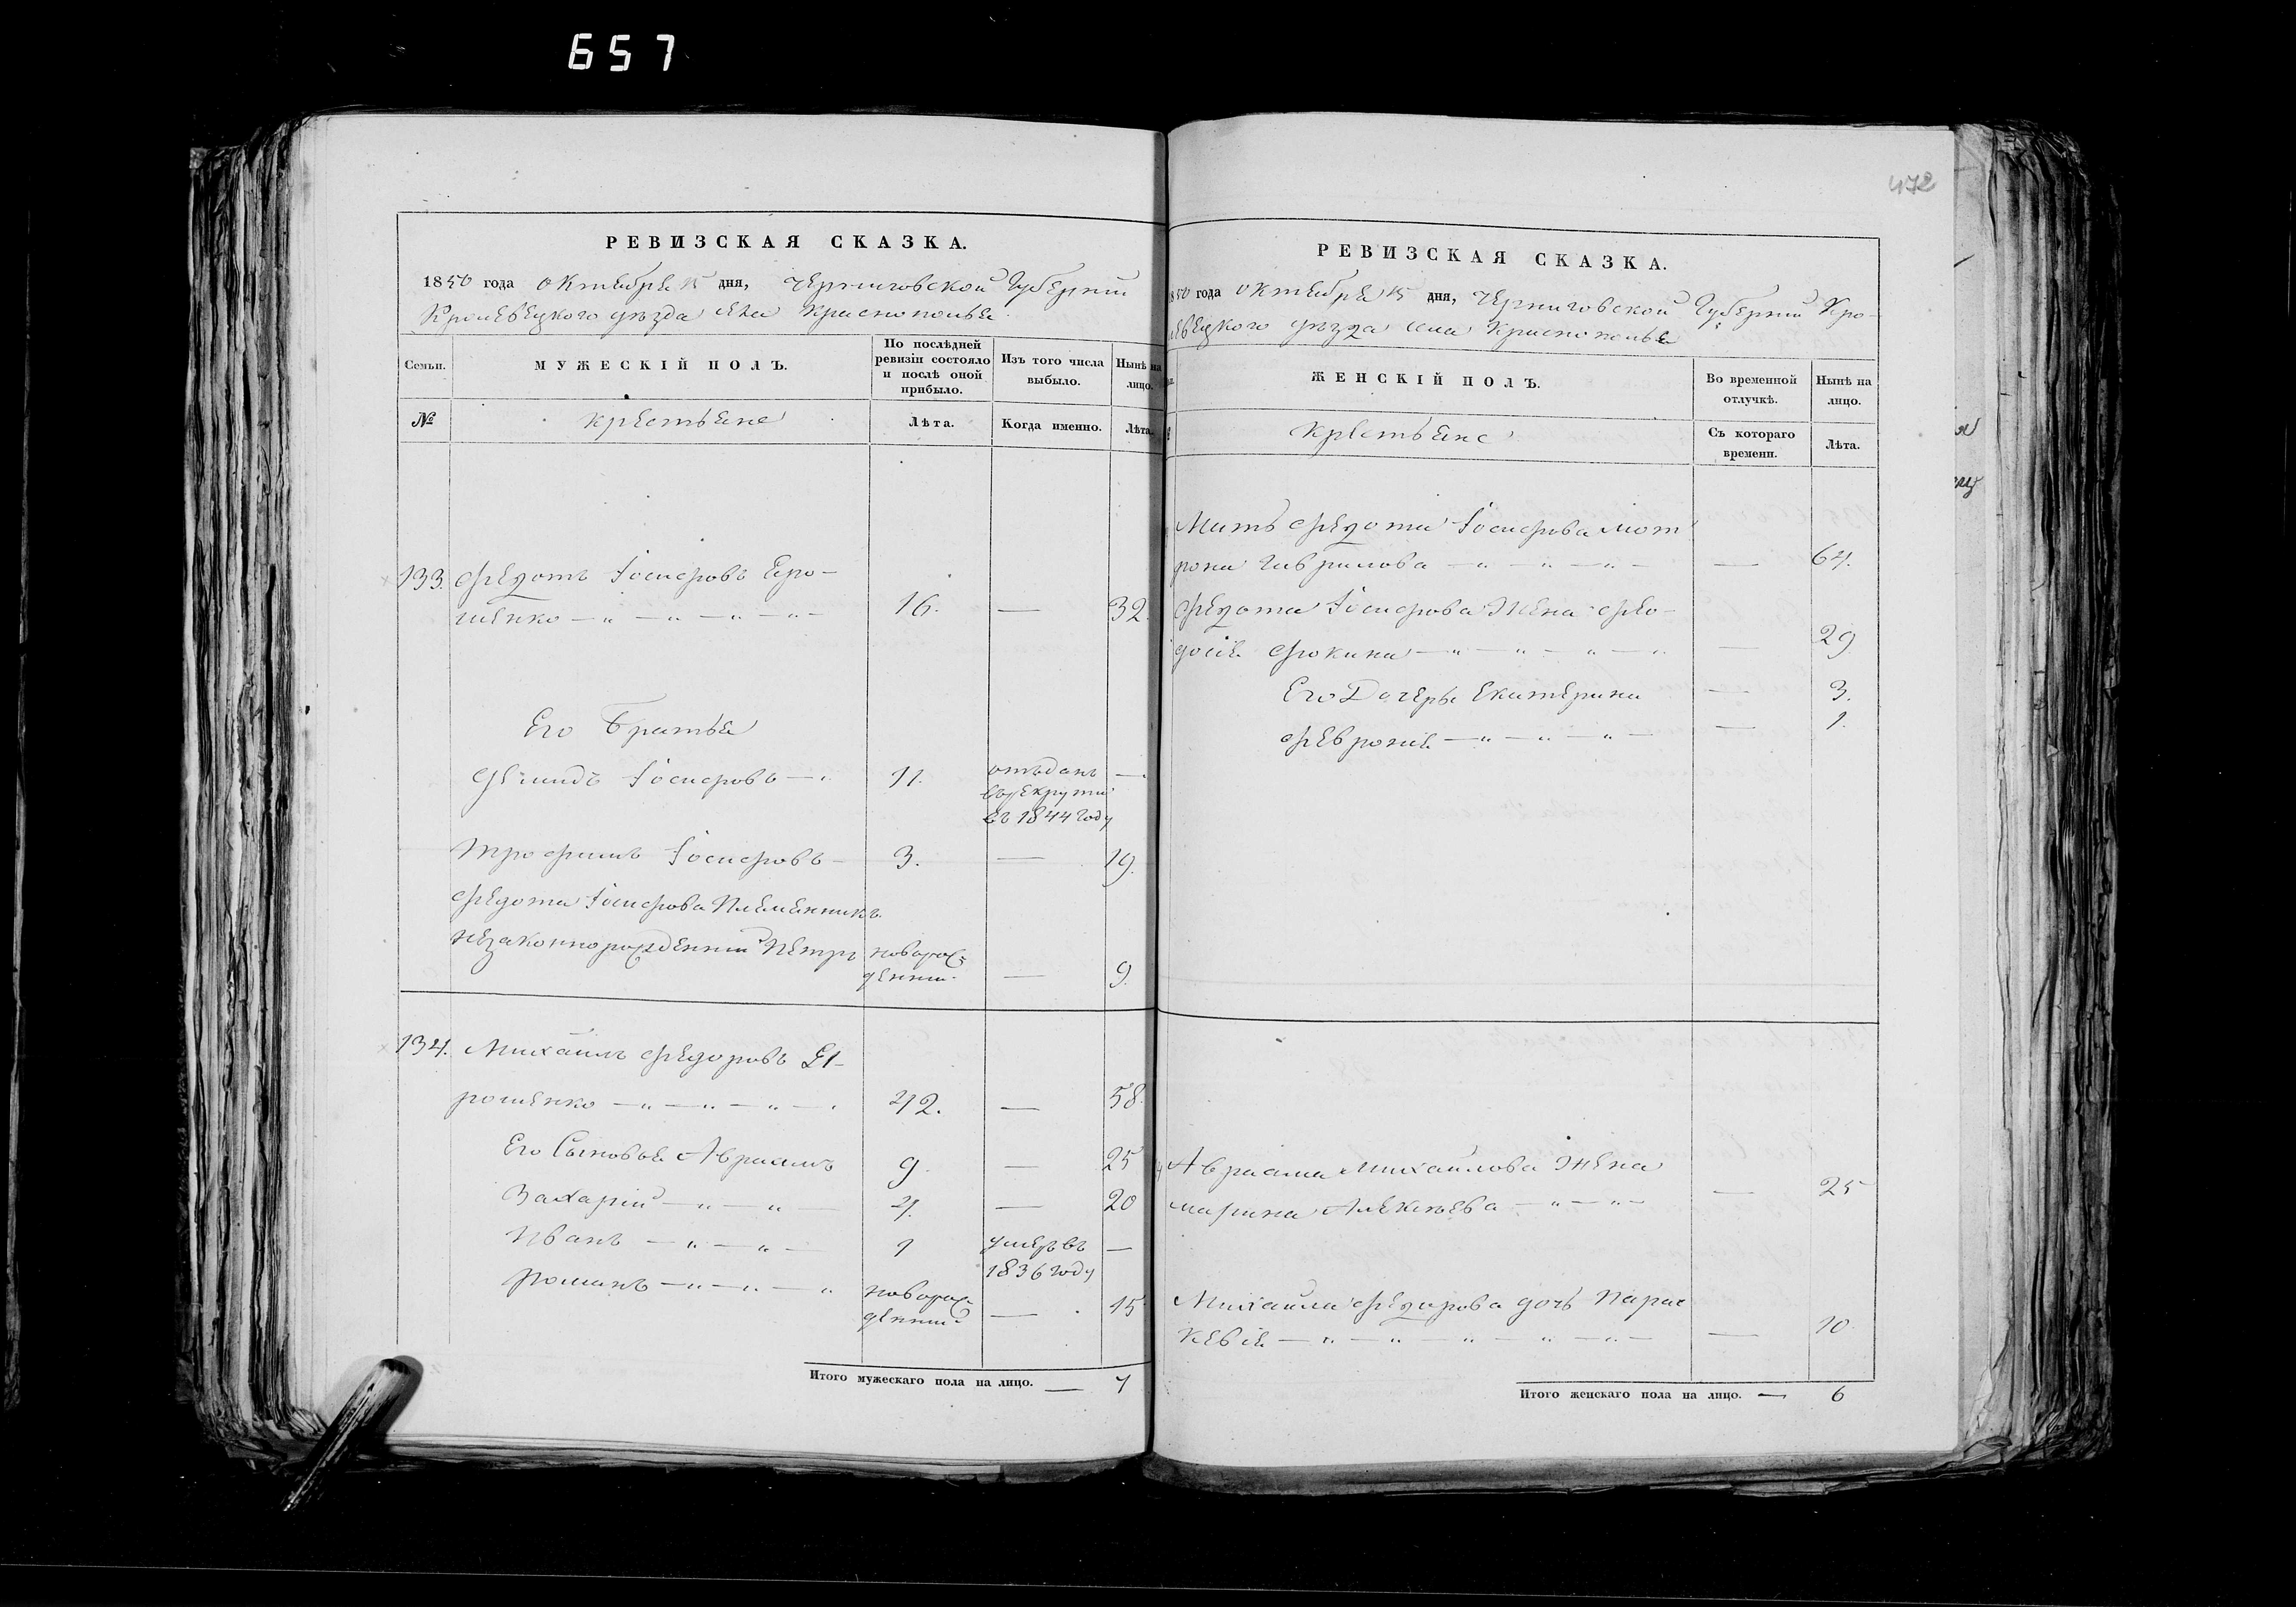 657
472
РЕВИЗСКАЯ СКАЗКА.
1850 года октября 15 дня, Черниговской Губернии
Кролевецкого уезда села Краснополья
Семьи.
МУЖЕСКІЙ ПОЛЪ.
По послѣдней ревизіи состояло и послѣ оной прибыло.
Изъ того числа выбыло.
Нынѣ на лицо.
№
крестьяне
Лѣта.
Когда именно.
Лѣта.
133. Федотъ Іосифовъ Еро-
шенко — „ — „ — „ — „ — 16. — 32.
Его Братья
Демидъ Іосифовъ — „ 11. отъдан —
въ рекруты
въ 1844 году
Трофимъ Іосифовъ — 3. — 19.
Федота Іосифова Племянникъ
незаконнорожденний Петръ новорож-
денни. — 9.
134. Михаилъ Федоровъ Е-
рошенко — „ — „ — „ — „ 42. — 58.
Его Сыновья Авраамъ 9. — 25
Захарій — „ — „ — 4. — 20
Иванъ — „ — „ — 1 умеръ въ —
1836 году
Романъ — „ — „ — „ новорож-
денний — 15
Итого мужескаго пола на лицо. — 7
РЕВИЗСКАЯ СКАЗКА.
1850 года октября 15 дня, Черниговской Губернии Кро-
левецкого уезда села Краснополья
ЖЕНСКІЙ ПОЛЪ.
Во временной отлучкѣ.
Нынѣ на лицо.
крестьяне
Съ котораго времени.
Лѣта.
Мать Федота Іосифова Мот
рона Гаврилова — „ — „ — „ — — 64.
Федота Іосифова Жена Фео-
досія Фокина — „ — „ — „ — „ — 29
Его Дочеры Екатерина — 3.
Феврония — „ — „ — „ — — 1.
Авраама Михайлова Жена
Марина Алексеева — „ — „ — — 25
Михаила Федорова дочь Парас
кевія — „ — „ — „ — „ — „ — — 10
Итого женскаго пола на лицо. — 6